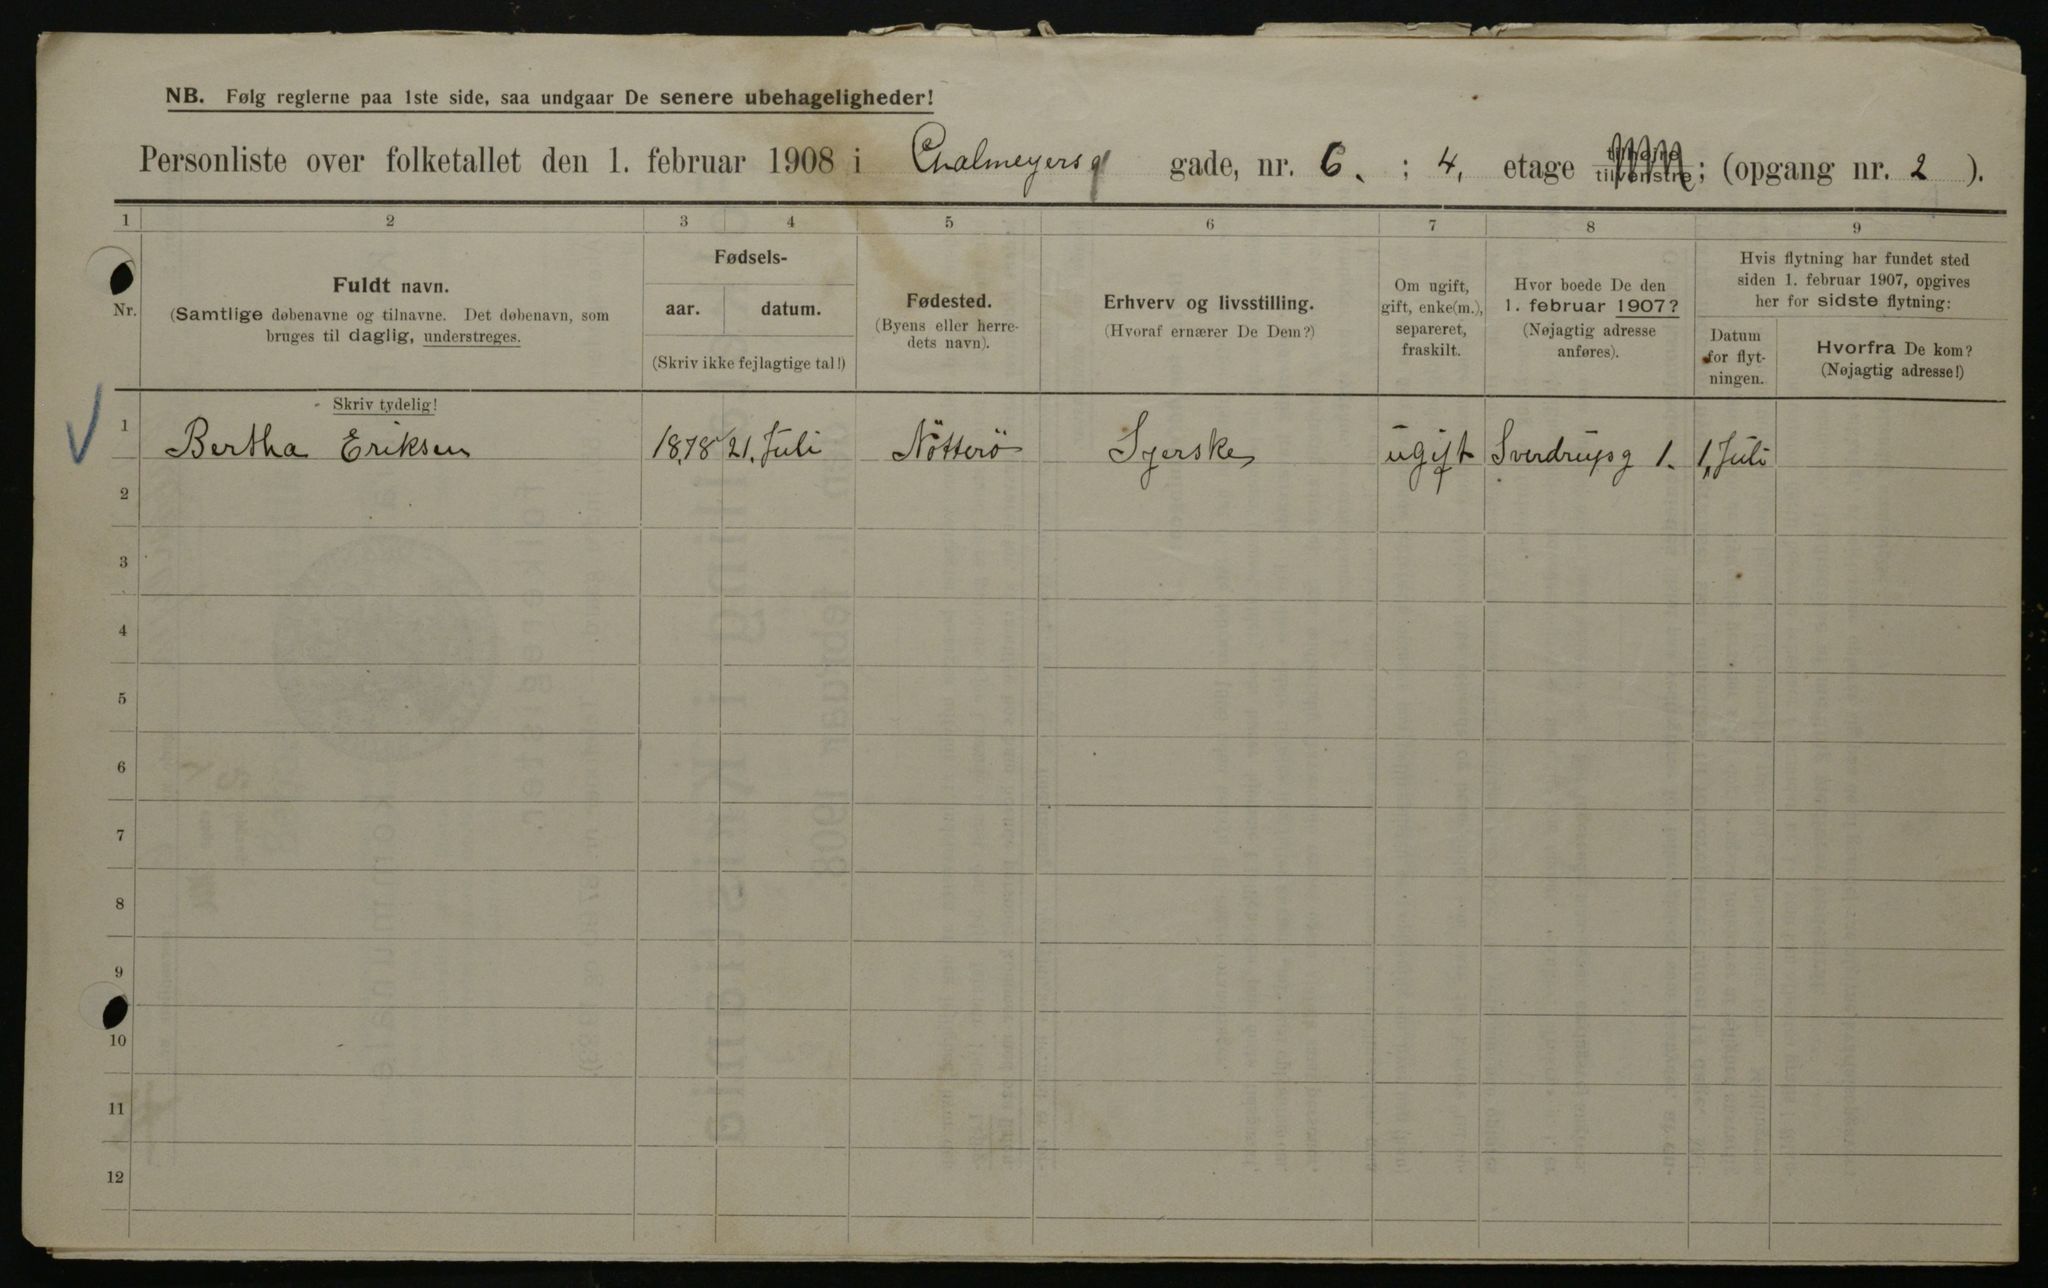 NB. Følg reglerne paa 1ste side, saa undgaar De senere ubehageligheder!
Personliste over folketallet den 1. februar 1908 i Chalmeyersg gade, nr. 6. ; 4. etage tilhøire tilvenstre; (opgang nr. 2 ).
1 2 3 4 5 6 7 8 9
Nr.
Fuldt navn.
(Samtlige døbenavne og tilnavne. Det døbenavn, som
bruges til daglig, understreges.
Fødsels-
aar. datum.
(Skriv ikke fejlagtige tal!)
Fødested.
(Byens eller herre-
dets navn).
Erhverv og livsstilling.
(Hvoraf ernærer De Dem?)
Om ugift,
gift, enke(m.),
separeret,
fraskilt.
Hvor boede De den
1. februar 1907?
(Nøjagtig adresse
anføres).
Hvis flytning har fundet sted
siden 1. februar 1907, opgives
her for sidste flytning:
Datum
for flyt-
ningen.
Hvorfra De kom?
(Nøjagtig adresse!)
Skriv tydelig!
1 Bertha Eriksen 1878 21. Juli Nötterö Syerske ugift Sverdrupsg 1. 1, Juli
2
3
4
5
6
7
8
9
10
11
12